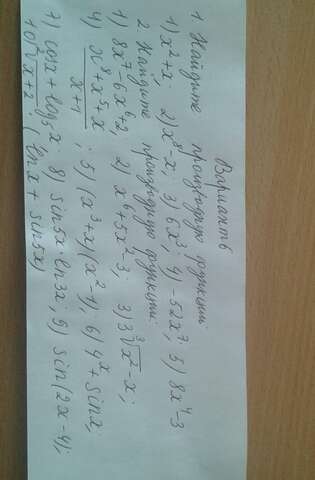 Вариант 6
1 Найдите производную функции
1) x² + x; 2) x⁸ - x; 3) 6x³; 4) -52x⁷; 5) 8x⁴-3
2 Найдите производную функций:
1) 8x⁷ - 6x⁶ + 2 2) x + 5x² - 3, 3) 3∛x² - x;
4) (x⁸ + x⁵ + x)/(x + 1); 5) (x³ + x)(x² - 1); 6) 4ˣ + sinx;
7) cosx + log₅x; 8) sin5x · ln3x; 9) sin(2x - 4);
10) √x+2 · (lnx + sin5x)